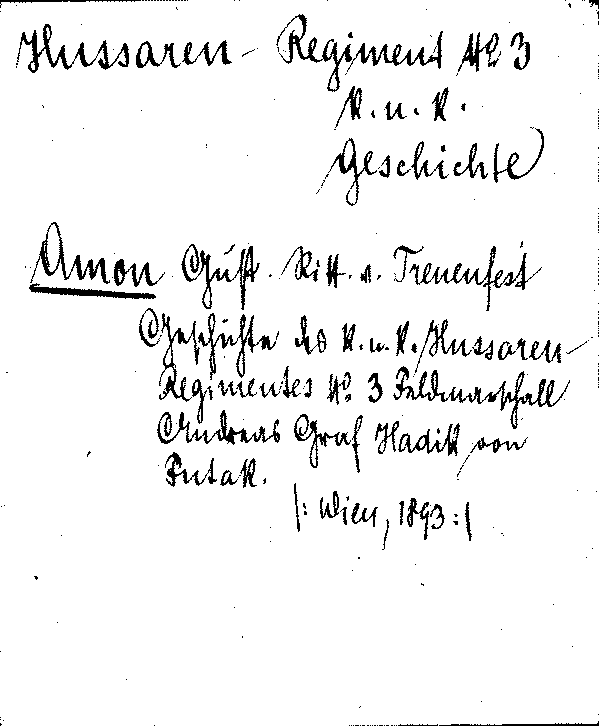 Hussaren - Regiment № 3
k. u. k.
Geschichte
Amon Gust. Ritt. v. Treuenfest
Geschichte des k. u. k. Hussaren-
Regimentes No. 3 Feldmarschall
Andreas Graf Hadik von
Futak.
/: Wien, 1893 :/